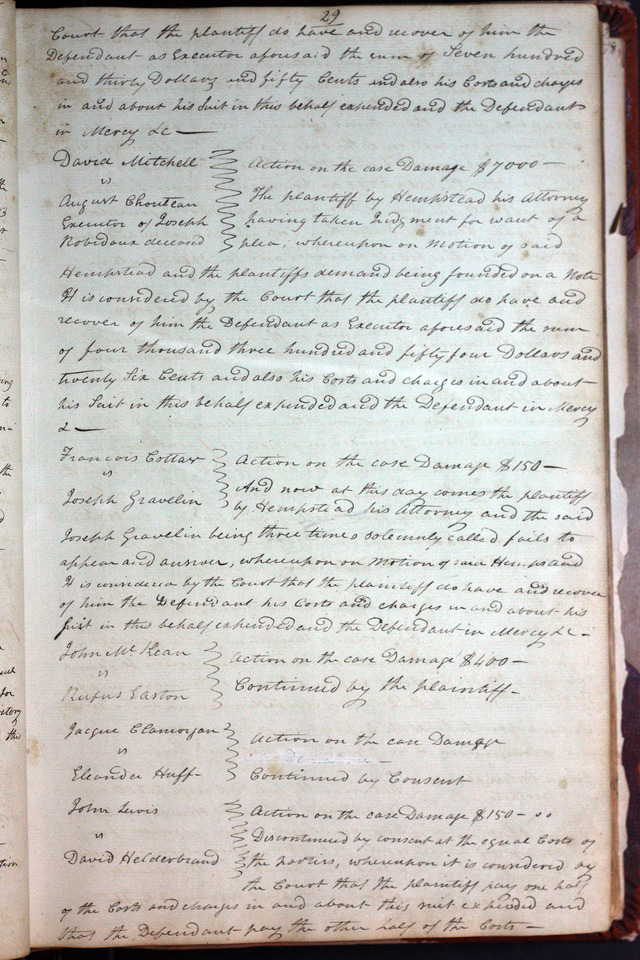 29
Court that the plaintiff do have and recover of him the
Defendant as Executor aforesaid the sum of Seven hundred
and thirty Dollars and fifty Cents and also his Costs and charges
in and about his Suit in this behalf expended and the Defendant
in Mercy &c —
David Mitchell
vs
August Chouteau
Executor of Joseph
Robidaux deceasd
Action on the case Damage $7000 —
The plaintiff by Hempstead his Attorney
having taken Judgment for want of a
plea; whereupon on Motion of said
Hempstead and the plaintiffs demand being founded on a Note
It is considered by the Court that the plaintiff do have and
recover of him the Defendant as Executor aforesaid the sum
of four thousand three hundred and fifty four Dollars and
twenty Six Cents and also his Costs and charges in and about
his Suit in this behalf expended and the Defendant in Mercy
& —
Francois Cottax
vs
Joseph Gravelin
Action on the case Damage $150 —
And now at this day comes the plaintiff
by Hempstead his Attorney and the said
Joseph Gravelin being three times solemnly called fails to
appear and answer, whereupon on Motion of said
It is considered by the Court that the plaintiff do have and recover
of him the Defendant his Costs and charges in and about his
Suit in this behalf expended and the Defendant in Mercy &c —
John McKean
vs
Rufus Easton
Action on the case Damage $400 —
Continued by the plaintiff —
Jacque Clamorgan
vs
Eleander Huff -
Action on the case Damage
Continued by Consent
John Lewis
vs
David Helderbrand
Action on the case Damage $150 —
Discontinued by consent at the equal Costs of
the parties, whereupon it is considered by
the Court that the plaintiff pay one half
of the Costs and charges in and about this suit expended and
that the Defendant pay the other half of the Costs —